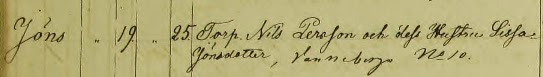 Jöns " 19 " 25 Torp. Nils Persson och dess Hustru Sissa
Jönsdotter, Vanneberga No 10.